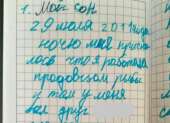 1. Мой сон
29 июля 2011 года
ночью мне присни
лось что я работала
продавцом рыбы
и там у меня
был друг